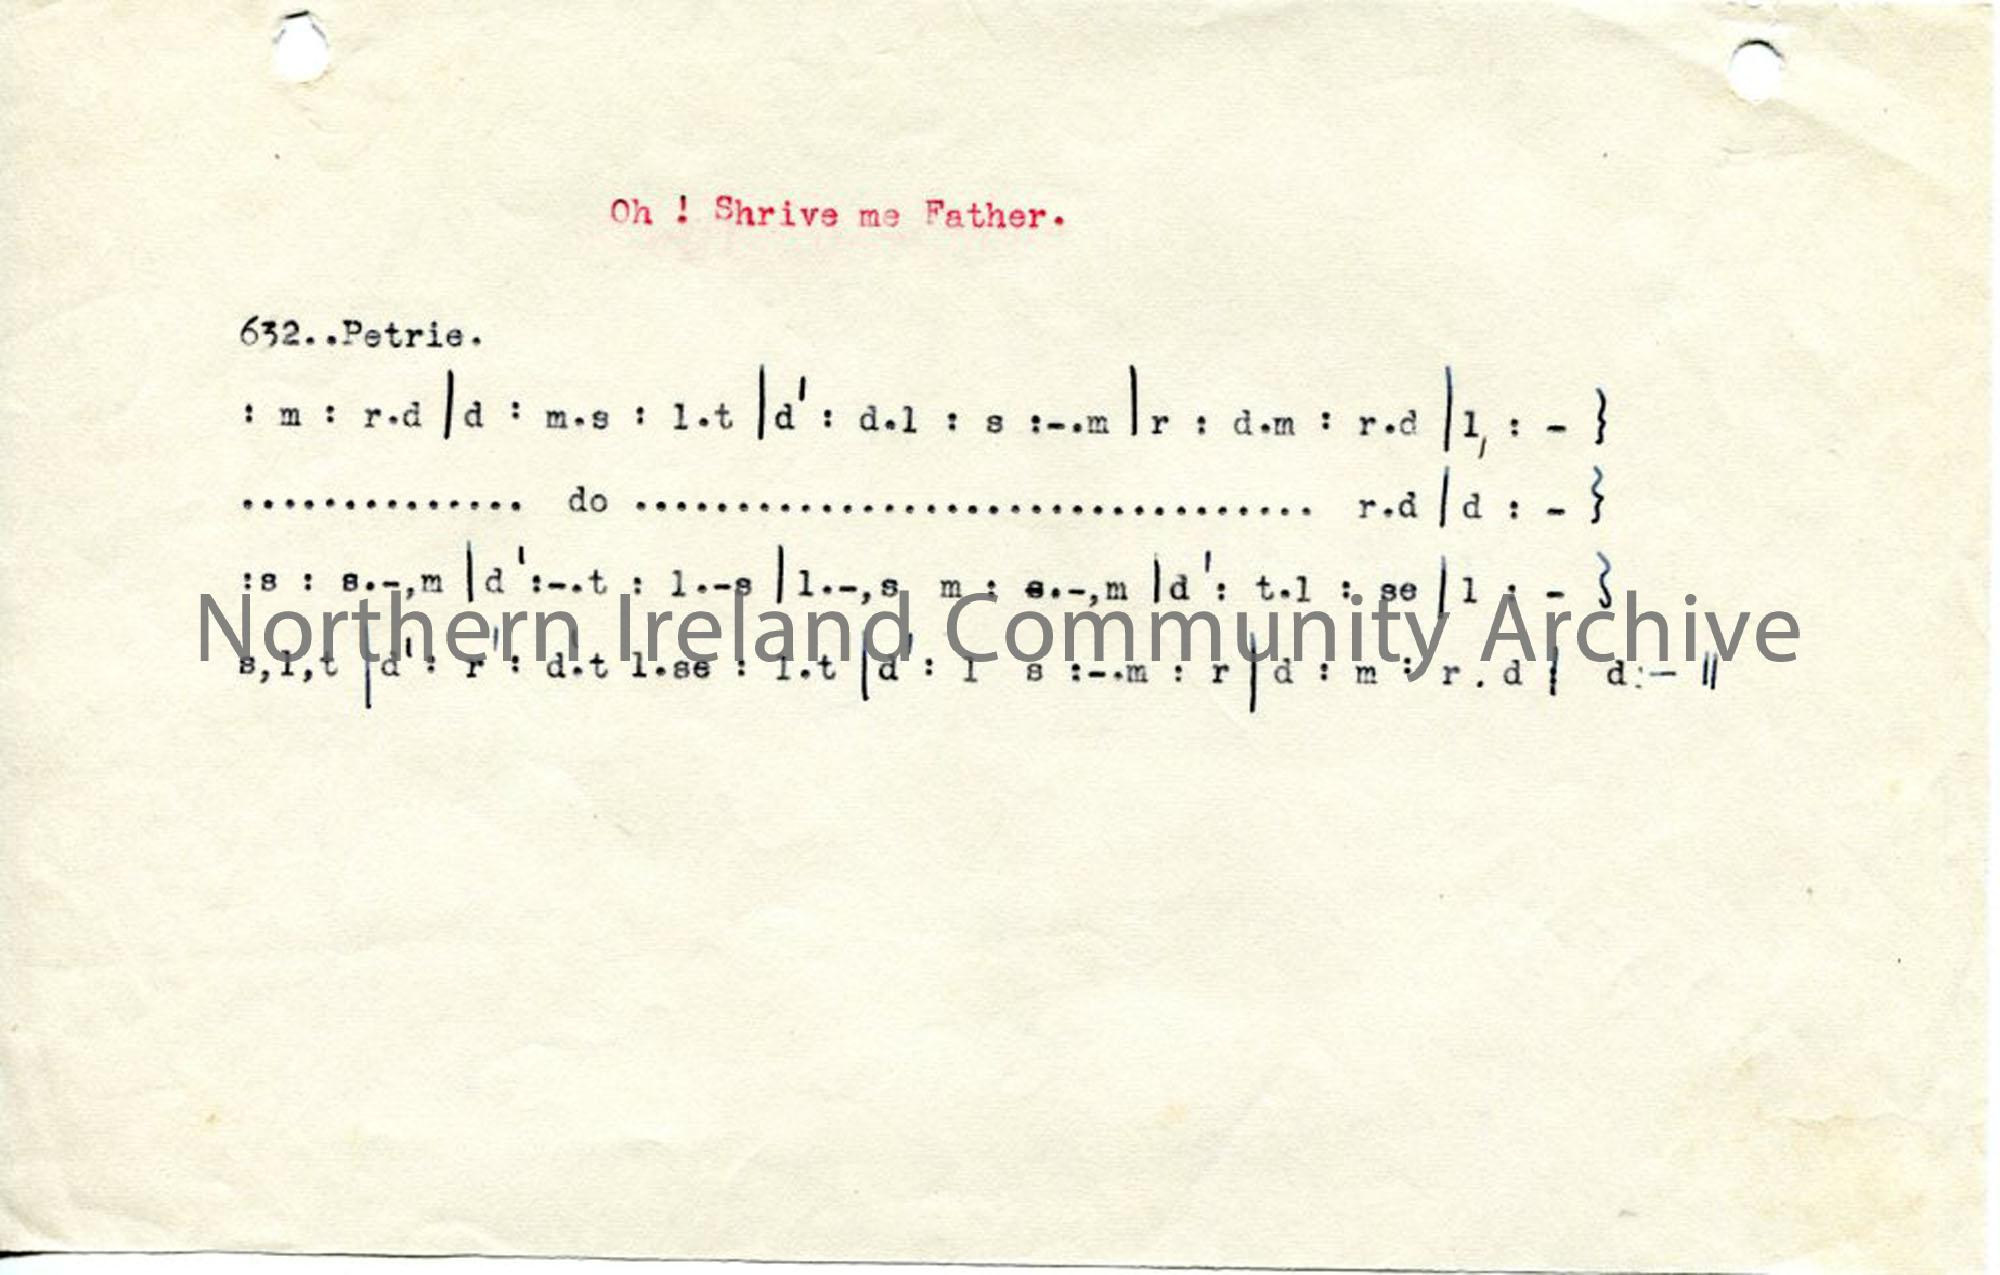 Oh ! Shrive me Father.
632..Petrie.
: m : r.d | d : m.s : l.t | d' : d.l : s :-.m | r : d.m : r.d | l, : - }
.............. do .................................. r.d | d : - }
:s : s.-,m | d':-.t : l.-s | l.-,s m : s.-,m | d' : t.l : se | l : - }
Northern Ireland Community Archive
s,l,t | d' : r' : d.t l.se : l.t | d' : l s :-.m : r | d : m : r . d | d:- ||